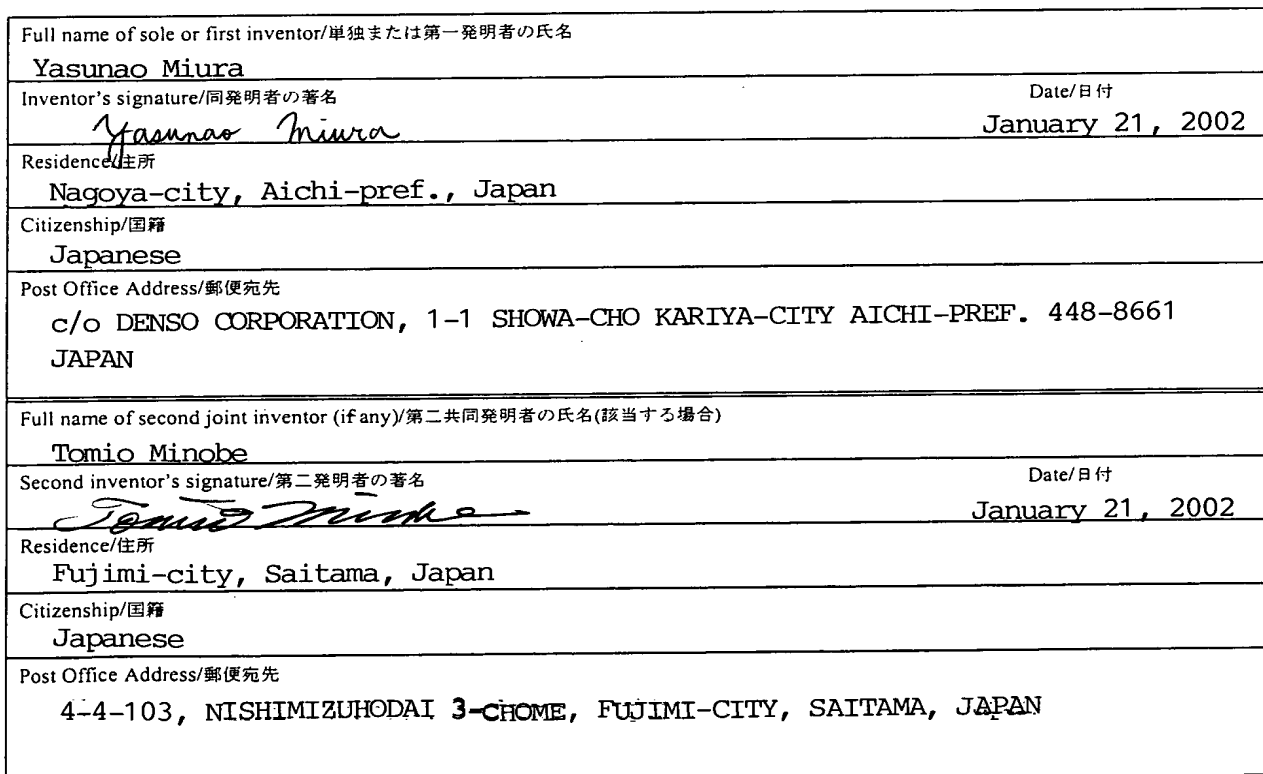 Full name of sole or first inventor/単独または第一発明者の氏名
Yasunao Miura
Inventor's signature/同発明者の著名
Date/日付
Yasunao Miura
January 21, 2002
Residence/住所
Nagoya-city, Aichi-pref., Japan
Citizenship/国籍
Japanese
Post Office Address/郵便宛先
c/o DENSO CORPORATION, 1-1 SHOWA-CHO KARIYA-CITY AICHI-PREF. 448-8661
JAPAN
Full name of second joint inventor (if any)/第二共同発明者の氏名(該当する場合)
Tomio Minobe
Second inventor's signature/第二発明者の著名
Date/日付
Tomio Minobe
January 21, 2002
Residence/住所
Fujimi-city, Saitama, Japan
Citizenship/国籍
Japanese
Post Office Address/郵便宛先
4-4-103, NISHIMIZUHODAI 3-CHOME, FUJIMI-CITY, SAITAMA, JAPAN